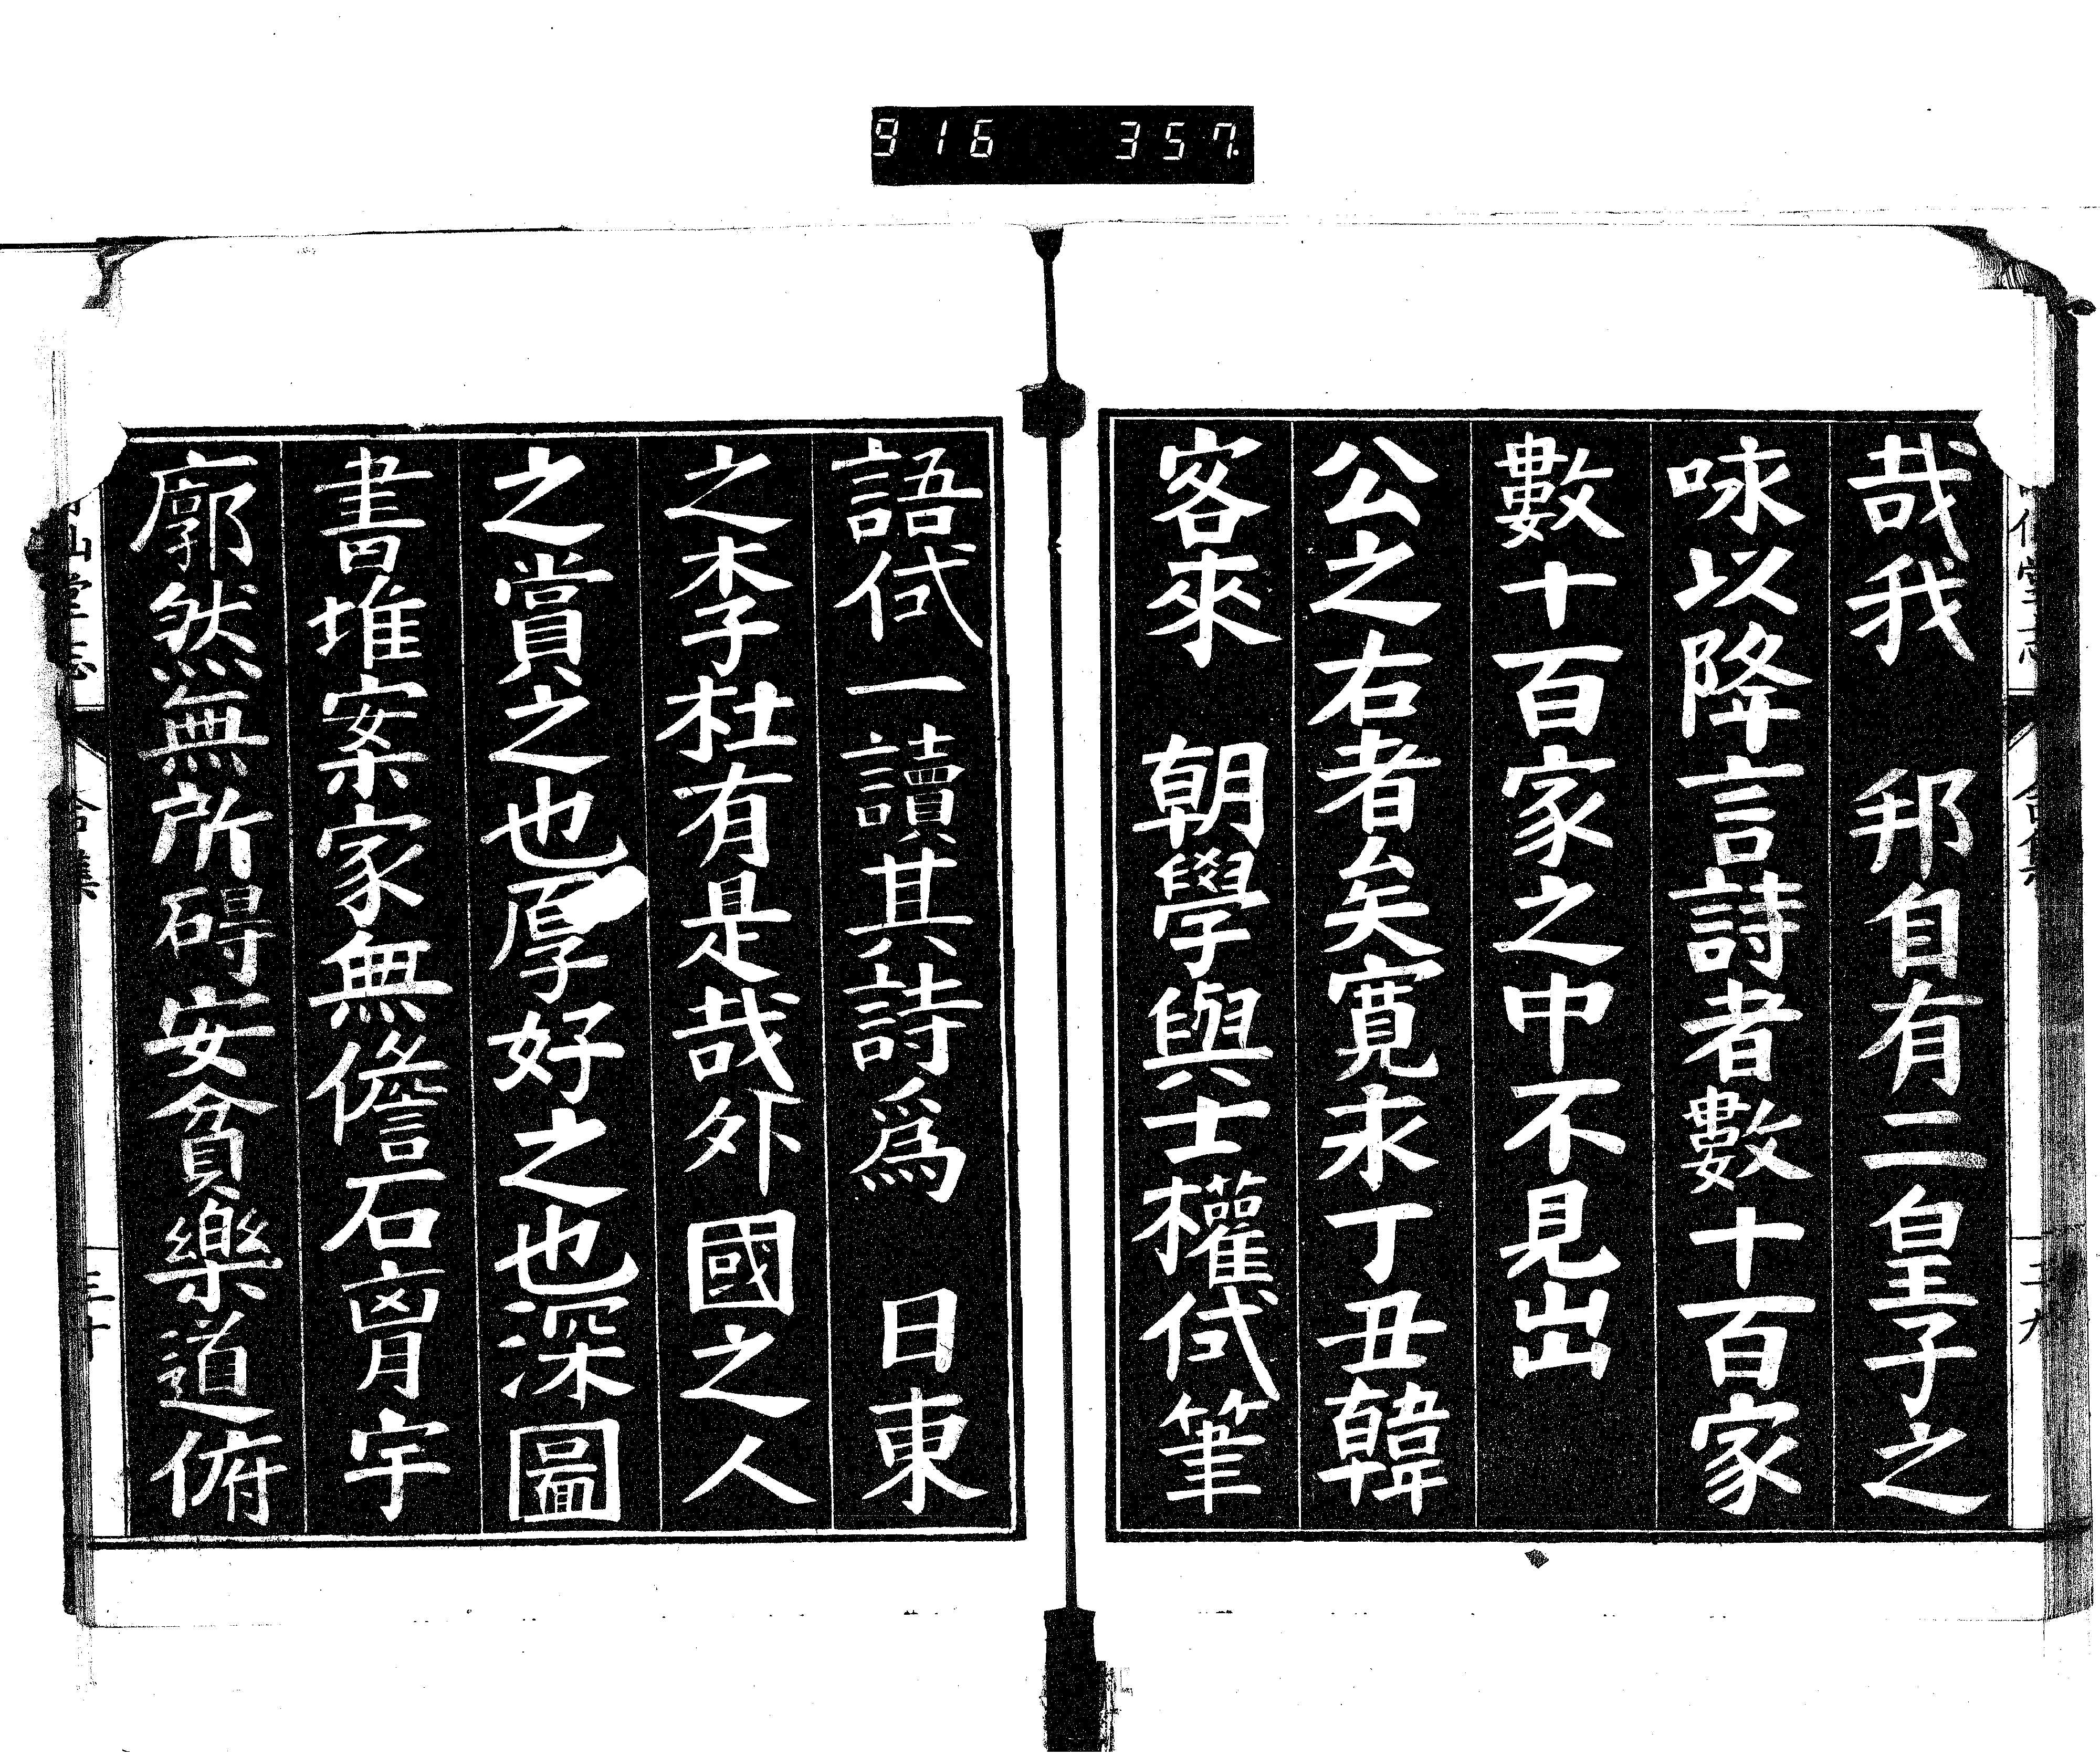 916 357
哉我 邦自有二皇子之
咏以降言詩者數十百家
數十百家之中不見出
公之右者矣寛永丁丑韓
客來 朝學與士權侙筆
語侙一讀其詩爲 日東
之李杜有是哉外國之人
之賞之也厚好之也深圖
書堆案家無儋石胷宇
廓然無所碍安貧樂道俯